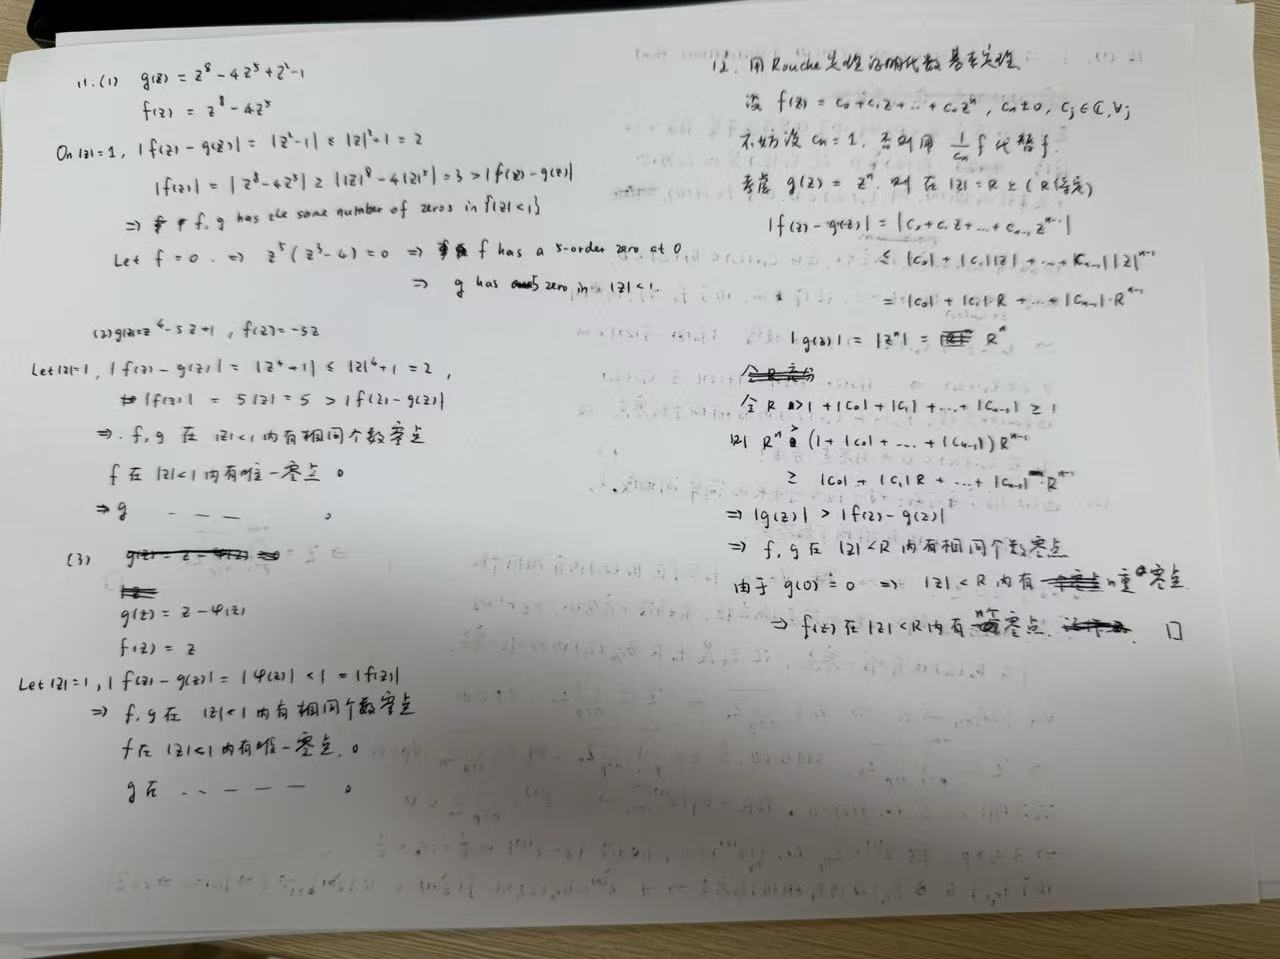 11. (1) g(z) = z⁸ - 4z⁵ + z² - 1
f(z) = z⁸ - 4z⁵
On |z|=1, |f(z) - g(z)| = |z² - 1| ≤ |z|² + 1 = 2
|f(z)| = |z⁸ - 4z⁵| ≥ ||z|⁸ - 4|z|⁵| = 3 > |f(z) - g(z)|
⇒ f, g has the same number of zeros in {|z|<1}
Let f = 0. ⇒ z⁵(z³-4) = 0 ⇒ f has a 5-order zero at 0
⇒ g has 5 zero in |z|<1.
(2) g(z)=z⁴-5z+1, f(z)=-5z
Let |z|=1, |f(z) - g(z)| = |z⁴+1| ≤ |z|⁴+1 = 2,
|f(z)| = 5|z| = 5 > |f(z) - g(z)|
⇒. f, g 在 |z|<1 内有相同个数零点
f 在 |z|<1 内有唯一零点 0
⇒ g - - — 。
(3)
g(z) = z - φ(z)
f(z) = z
Let |z|=1, |f(z) - g(z)| = |φ(z)| < 1 = |f(z)|
⇒ f, g 在 |z|<1 内有相同个数零点
f 在 |z|<1 内有唯一零点. 0
g 在 - - — — — 。
12. 用 Rouche 定理证明代数基本定理
设 f(z) = c₀ + c₁z + ... + cₙzⁿ, cₙ≠0, cⱼ∈ℂ, ∀j
不妨设 cₙ = 1. 否则用 1/cₙ f 代替 f.
考虑 g(z) = zⁿ. 则在 |z| = R 上 (R待定)
|f(z) - g(z)| = |c₀ + c₁z + ... + cₙ₋₁zⁿ⁻¹|
≤ |c₀| + |c₁||z| + ... + |cₙ₋₁||z|ⁿ⁻¹
= |c₀| + |c₁|·R + ... + |cₙ₋₁|·Rⁿ⁻¹
|g(z)| = |zⁿ| = Rⁿ
令 R > 1 + |c₀| + |c₁| + ... + |cₙ₋₁| ≥ 1
则 Rⁿ > (1 + |c₀| + ... + |cₙ₋₁|) Rⁿ⁻¹
≥ |c₀| + |c₁|R + ... + |cₙ₋₁|·Rⁿ⁻¹
⇒ |g(z)| > |f(z) - g(z)|
⇒ f, g 在 |z| < R 内有相同个数零点
由于 g(0) = 0 ⇒ |z| < R 内有 n重 零点.
⇒ f(z) 在 |z| < R 内有 n个 零点. □